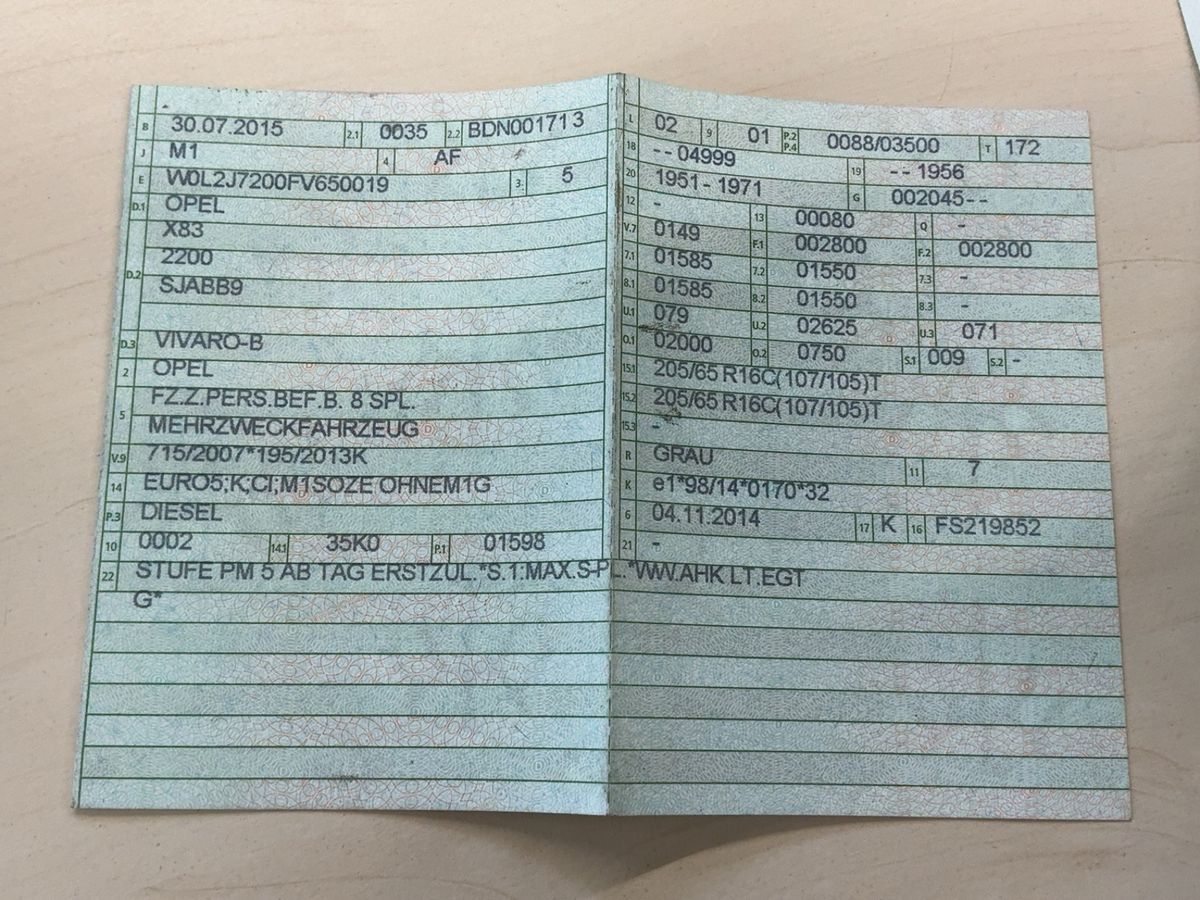 B 30.07.2015 2.1 0035 2.2 BDN001713
J M1 4 AF
E W0L2J7200FV650019 3 5
D.1 OPEL
X83
D.2 2200
SJABB9
D.3 VIVARO-B
2 OPEL
5 FZ.Z.PERS.BEF.B. 8 SPL.
MEHRZWECKFAHRZEUG
V.9 715/2007*195/2013K
14 EURO5;K;CI;M1SOZE OHNEM1G
P.3 DIESEL
10 0002 14.1 35K0 P.1 01598
L 02 9 01 P.2 P.4 0088/03500 T 172
18 --04999 19 --1956
20 1951-1971 G 002045--
12 - 13 00080 Q -
V.7 0149 F.1 002800 F.2 002800
7.1 01585 7.2 01550 7.3 -
8.1 01585 8.2 01550 8.3 -
U.1 079 U.2 02625 U.3 071
O.1 02000 O.2 0750 S.1 009 S.2 -
15.1 205/65 R16C(107/105)T
15.2 205/65 R16C(107/105)T
15.3 -
R GRAU 11 7
K e1*98/14*0170*32
6 04.11.2014 17 K 16 FS219852
21 -
22 STUFE PM 5 AB TAG ERSTZUL.*S.1:MAX.S-PL.*WW.AHK LT.EGT
G*